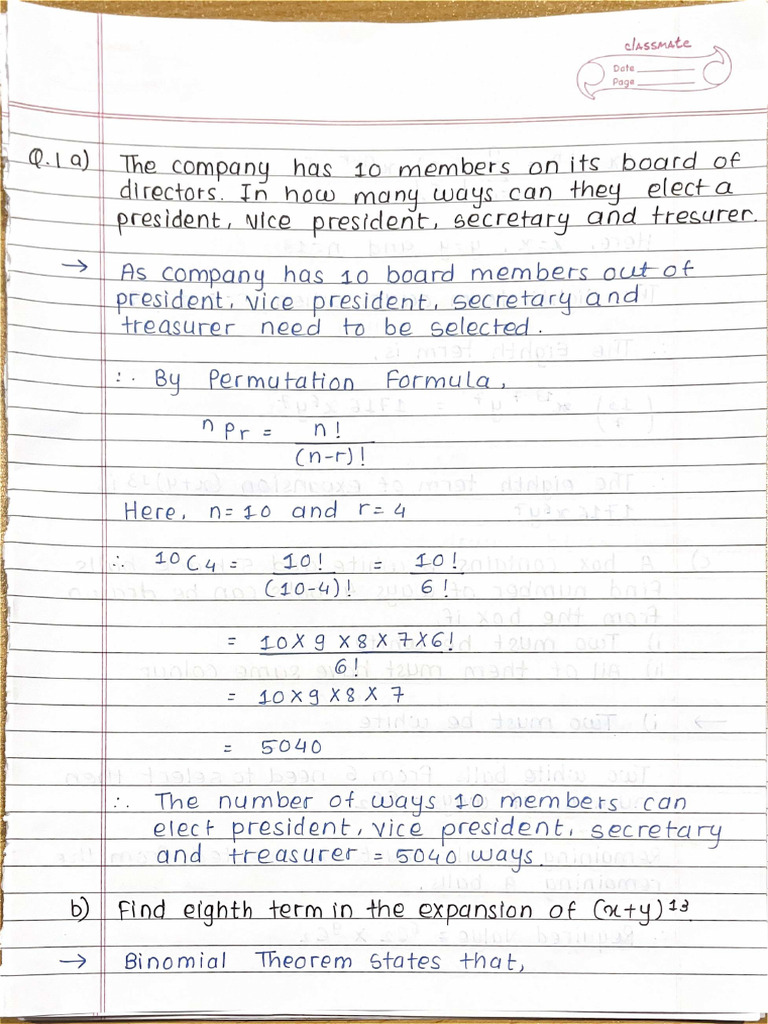 classmate
Date
Page
Q.1 a) The company has 10 members on its board of
directors. In how many ways can they elect a
president, vice president, secretary and tresurer.
→ As company has 10 board members out of
president, vice president, secretary and
treasurer need to be selected.
∴ By Permutation Formula,
ⁿPr = n!
(n-r)!
Here, n=10 and r=4
∴ ¹⁰C₄ = 10! = 10!
(10-4)! 6!
= 10×9×8×7×6!
6!
= 10×9×8×7
= 5040
∴ The number of ways 10 members can
elect president, vice president, secretary
and treasurer = 5040 ways.
b) Find eighth term in the expansion of (x+y)¹³
→ Binomial Theorem states that,